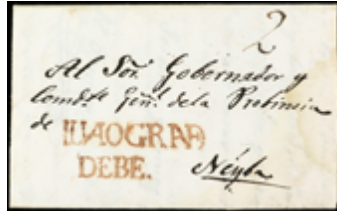 2
Al Sór. Gobernador y
Comdte. Jenl. de la Probinsia
de
DEBE.
Neyba